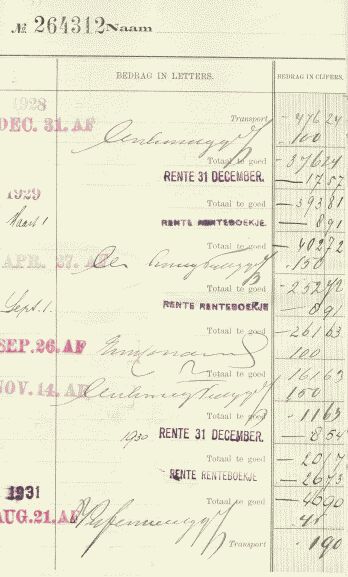 № 264312 Naam
BEDRAG IN LETTERS. BEDRAG IN CIJFERS.
1928 Transport 476 24
DEC. 31. AF 100
Totaal te goed 376 24
RENTE 31 DECEMBER. 17 57
1929 Totaal te goed 393 81
Maart 1 RENTE RENTEBOEKJE. 8 91
Totaal te goed 402 72
APR. 27. AF 150
Totaal te goed 252 72
Sept. 1. RENTE RENTEBOEKJE 8 91
Totaal te goed 261 63
SEP. 26. AF 100
Totaal te goed 161 63
NOV. 14. AF 150
Totaal te goed 11 63
1930 RENTE 31 DECEMBER. 8 54
Totaal te goed 20 17
RENTE RENTEBOEKJE 26 73
1931 Totaal te goed 46 90
AUG. 21. AF
Transport 1 90